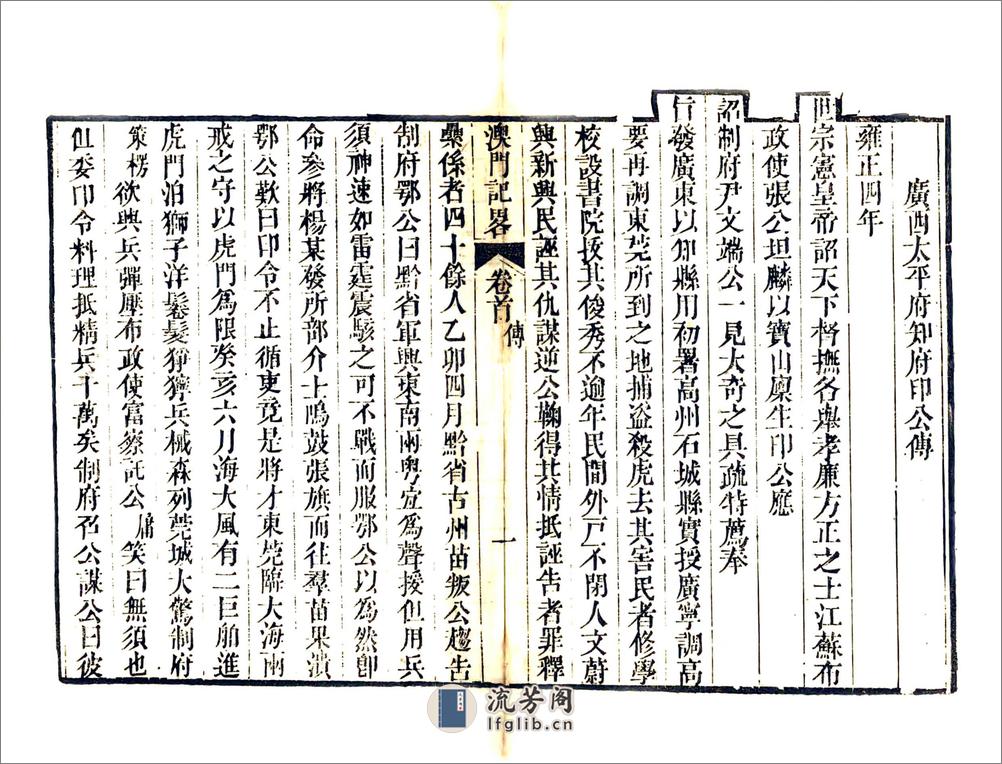 廣西太平府知府印公傳
雍正四年
世宗憲皇帝詔天下督撫各舉孝廉方正之士江蘇布
政使張公坦麟以寶山廩生印公應
詔制府尹文端公一見大奇之具疏特薦奉
旨發廣東以知縣用初署高州石城縣實授廣寧調高
要再調東莞所到之地捕盜殺虎去其害民者修學
校設書院拔其俊秀不逾年民間外戸不閉人文蔚
興新興民誣其仇謀逆公鞠得其情抵誣告者罪釋
澳門記畧 卷首 傳 一
纍係者四十餘人乙卯四月黔省古州苗叛公趨告
制府鄂公曰黔省軍興東南兩粤宜爲聲援但用兵
須神速如雷霆震駭之可不戰而服鄂公以為然卽
命參將楊某發所部介士鳴鼓張旗而往羣苗果潰
鄂公歎曰印令不止循吏竟是將才東莞臨大海兩
戒之守以虎門為限癸亥六月海大風有二巨舶進
虎門泊獅子洋鬈髮猙獰兵械森列莞城大驚制府
策楞欲興兵彈壓布政使富察託公庸笑曰無須也
但委印令料理抵精兵十萬矣制府召公謀公曰彼
流芳阁
lfglib.cn